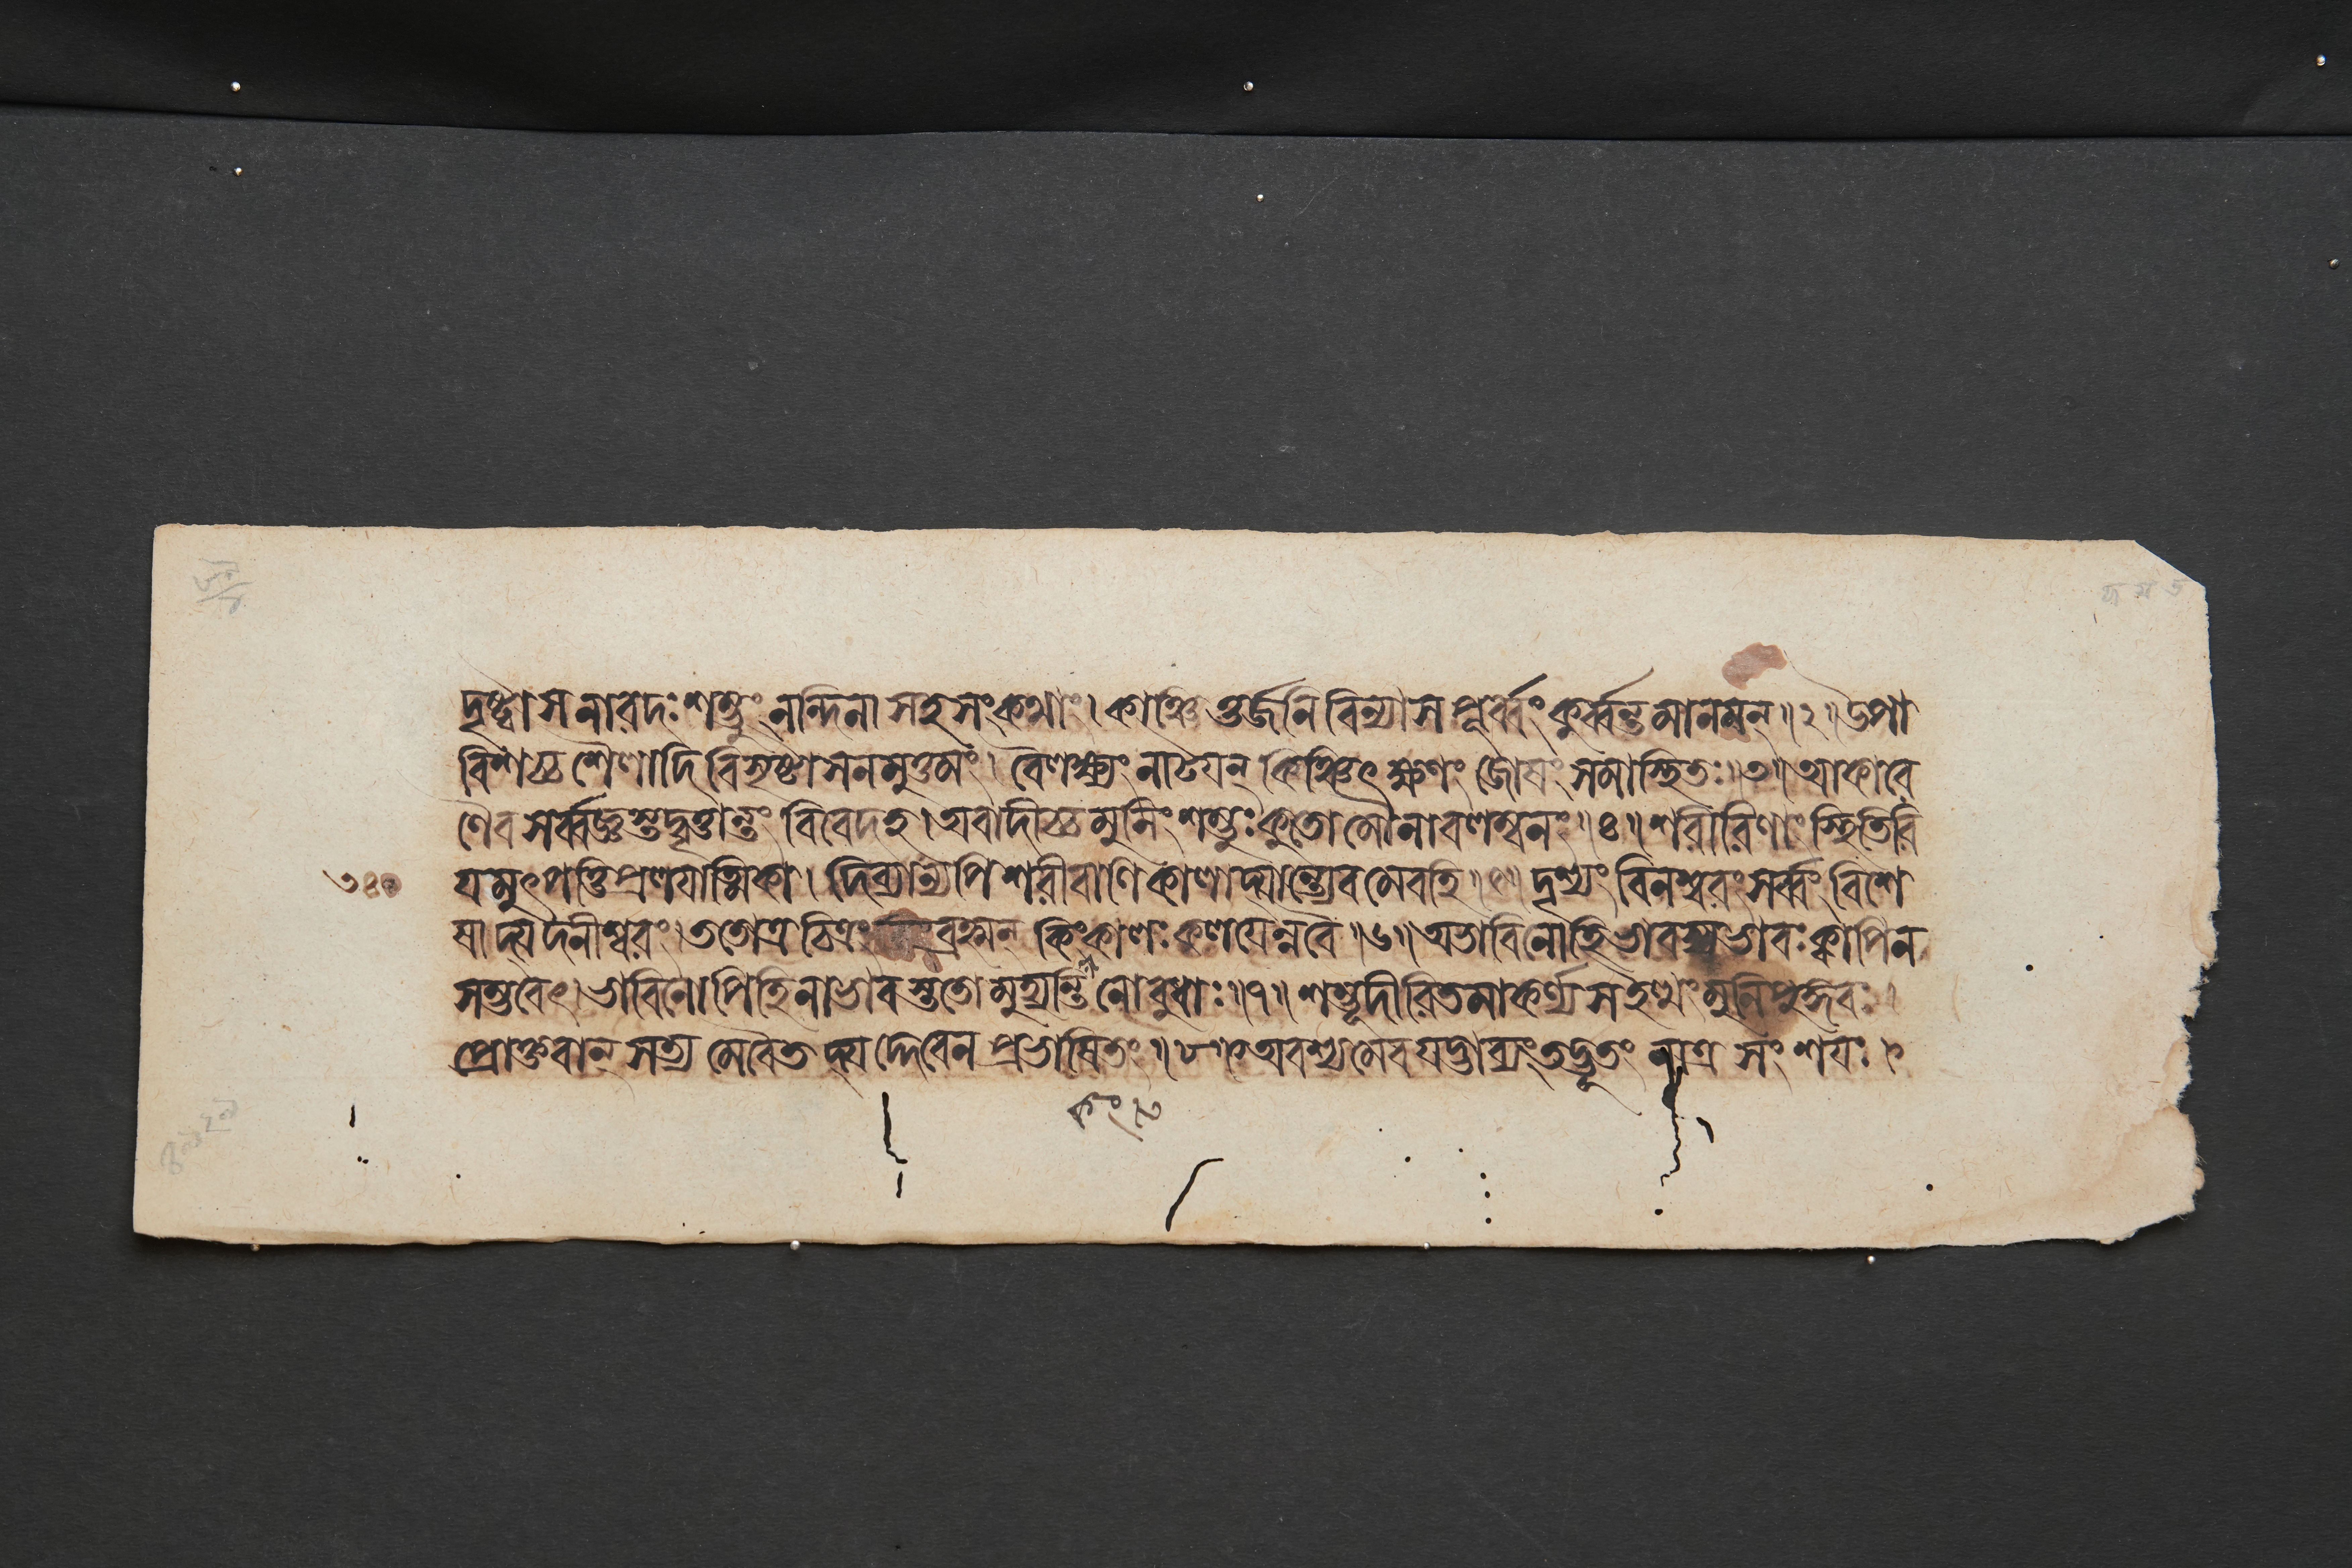 দৃষ্ট্বা স নারদঃ শম্ভুং নন্দিনা সহ সংকথাং। কাঞ্চি ত্তর্জনি বিন্যাস পূর্ব্বং কুর্ব্বন্ত মানমন্॥২॥উপা
বিশচ্চ শৈলাদি বিসৃষ্টাসনমুত্তমং। বৈলক্ষ্যং নাটয়ন্ কিঞ্চিৎ ক্ষণং জোষং সমাস্থিতঃ॥৩॥আকারে
ণৈব সর্ব্বজ্ঞস্তদ্বৃত্তান্তং বিবেদহ।অবাদীচ্চ মুনিং শম্ভুঃ কুতো মৌনাবলম্বনং॥৪॥শরীরিণাং স্থিতিরি
৩৪০ যমুৎপত্তি প্রলয়াত্মিকা। দিব্যান্যপি শরীরাণি কালাদ্যান্ত্যেবমেবহি॥৫॥দৃশ্যং বিনশ্বরং সর্ব্বং বিশে
ষাদ্যদনীশ্বরং।ততোত্র চিত্রং কিং ব্রহ্মন্ কিং কালঃ কলয়েন্নবৈ॥৬॥অভাবিনোহি ভাবস্য ভাবঃ ক্বাপি ন
সম্ভবেৎ।ভাবিনোপি হি নাভাবস্ততো মুহ্যন্তি নো বুধাঃ॥৭॥শম্ভূদীরিতমাকর্ণ্য স ইত্থং মুনিপুঙ্গবঃ।
প্রোক্তবান্ সত্য মেবৈত দ্যদ্দেবেন প্রভাষিতং॥৮॥অবশ্যমেব যদ্ভাব্যং তদ্ভূতং নাত্র সংশয়ঃ।